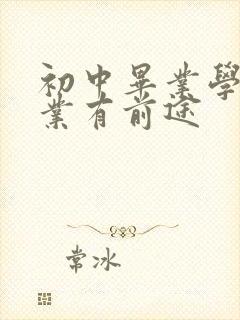 初中畢業學
業有前途
常冰